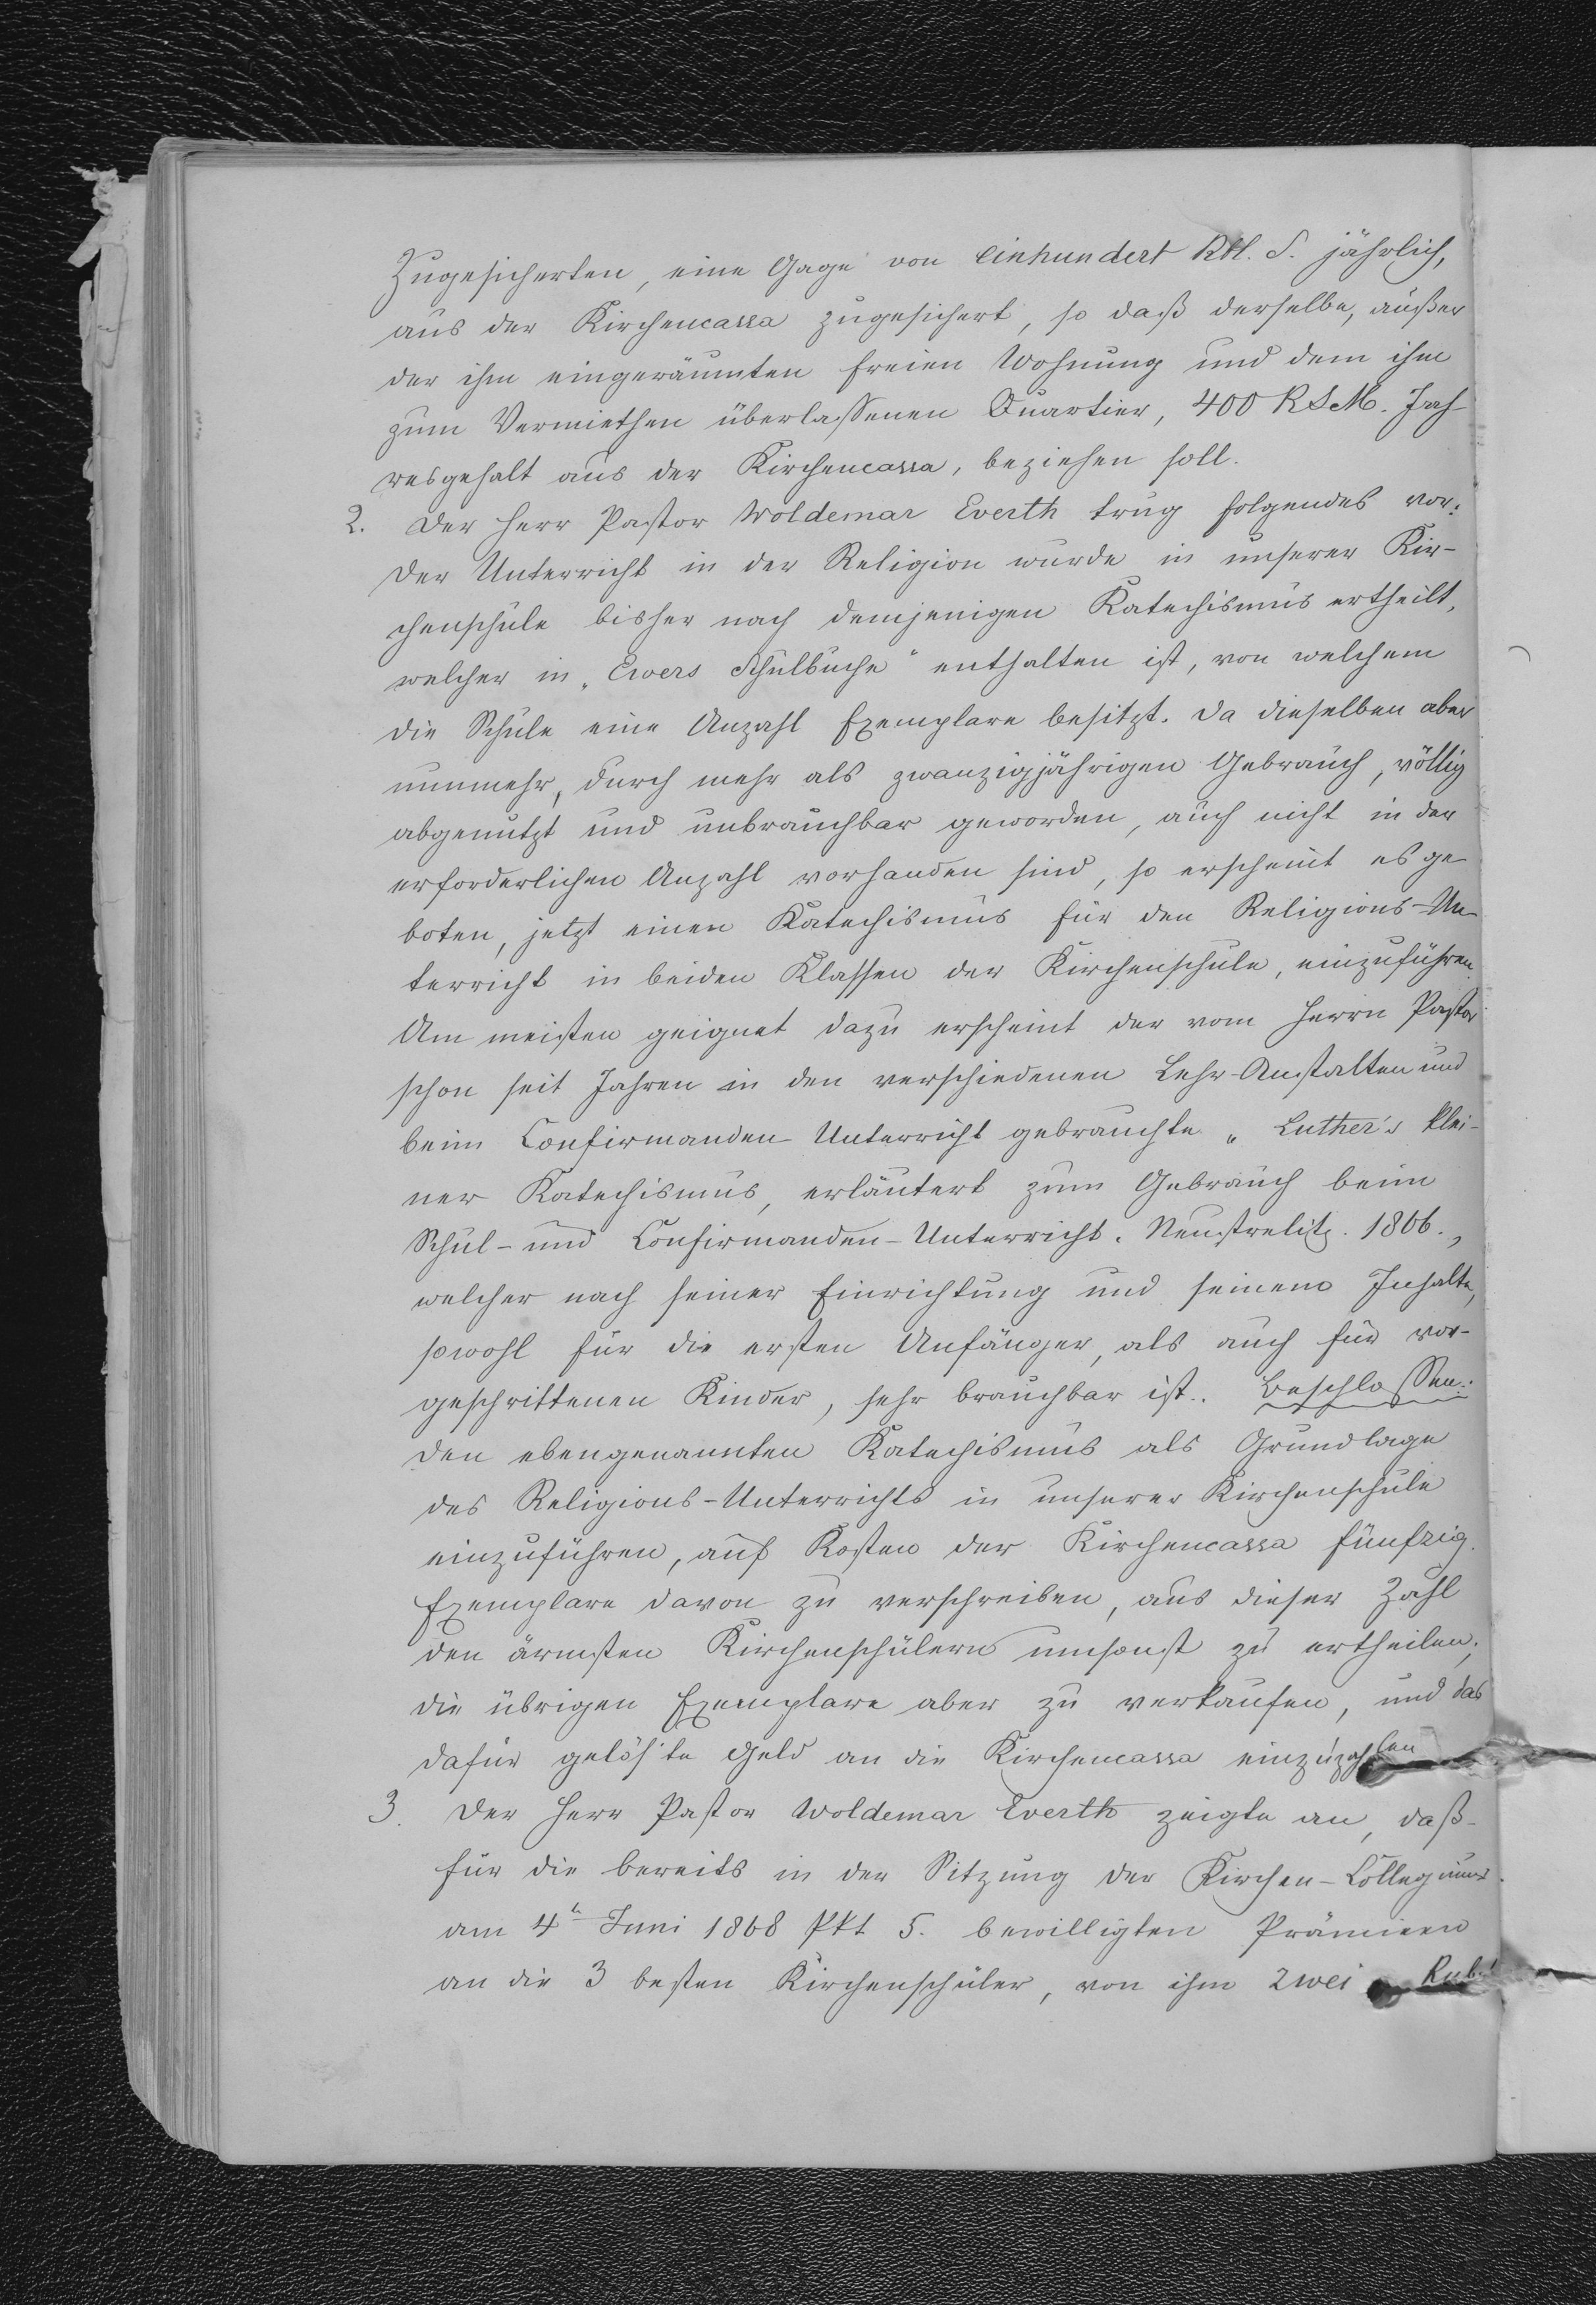 Zugesicherten, eine Gage von einhundert Rbl. S. jährlich,
aus der Kirchencassa zugesichert, so daß derselbe, außer
der ihm eingeräumten freien Wohnung und dem ihm
zum Vermiethen überlassenen Quartier, 400 R S.M. Jah-
resgehalt aus der Kirchencassa, beziehen soll.
2. Der Herr Pastor Woldemar Everth trug folgendes vor:
Der Unterricht in der Religion wurde in unserer Kir-
chenschule bisher nach demjenigen Katechismus ertheilt,
welcher in „Ewers Schulbuche" enthalten ist, von welchem
die Schule eine Anzahl Exemplare besitzt. Da dieselben aber
nunmehr, durch mehr als zwanzigjährigen Gebrauch, völlig
abgenutzt und unbrauchbar geworden, auch nicht in der
erforderlichen Anzahl vorhanden sind, so erscheint es ge-
boten, jetzt einen Katechismus für den Religions-Un-
terricht in beiden Klassen der Kirchenschule, einzuführen.
Am meisten geignet dazu erscheint der vom Herrn Pastor
schon seit Jahren in den verschiedenen Lehr-Anstalten und
beim Confirmanden-Unterricht gebrauchte „Luther's klei-
ner Katechismus, erläutert zum Gebrauch beim
Schul- und Confirmanden-Unterricht. Neustrelitz. 1866.,
welcher nach seiner Einrichtung und seinem Inhalte,
sowohl für die ersten Anfänger, als auch für vor-
geschrittenen Kinder, sehr brauchbar ist. Beschlossen:
den ebengenannten Katechismus als Grundlage
des Religions-Unterrichts in unserer Kirchenschule
einzuführen, auf Kosten der Kirchencassa fünfzig
Exemplare davon zu verschreiben, aus dieser Zahl
den ärmsten Kirchenschülern umsonst zu ertheilen,
die übrigen Exemplare aber zu verkaufen, und das
dafür gelös'te Geld an die Kirchencassa einzuzahlen
3. Der Herr Pastor Woldemar Everth zeigte an, daß
für die bereits in der Sitzung der Kirchen-Collegiums
am 4n Juni 1868 Pkt 5. bewilligten Prämieen
an die 3 besten Kirchenschüler, von ihm zwei Rubel